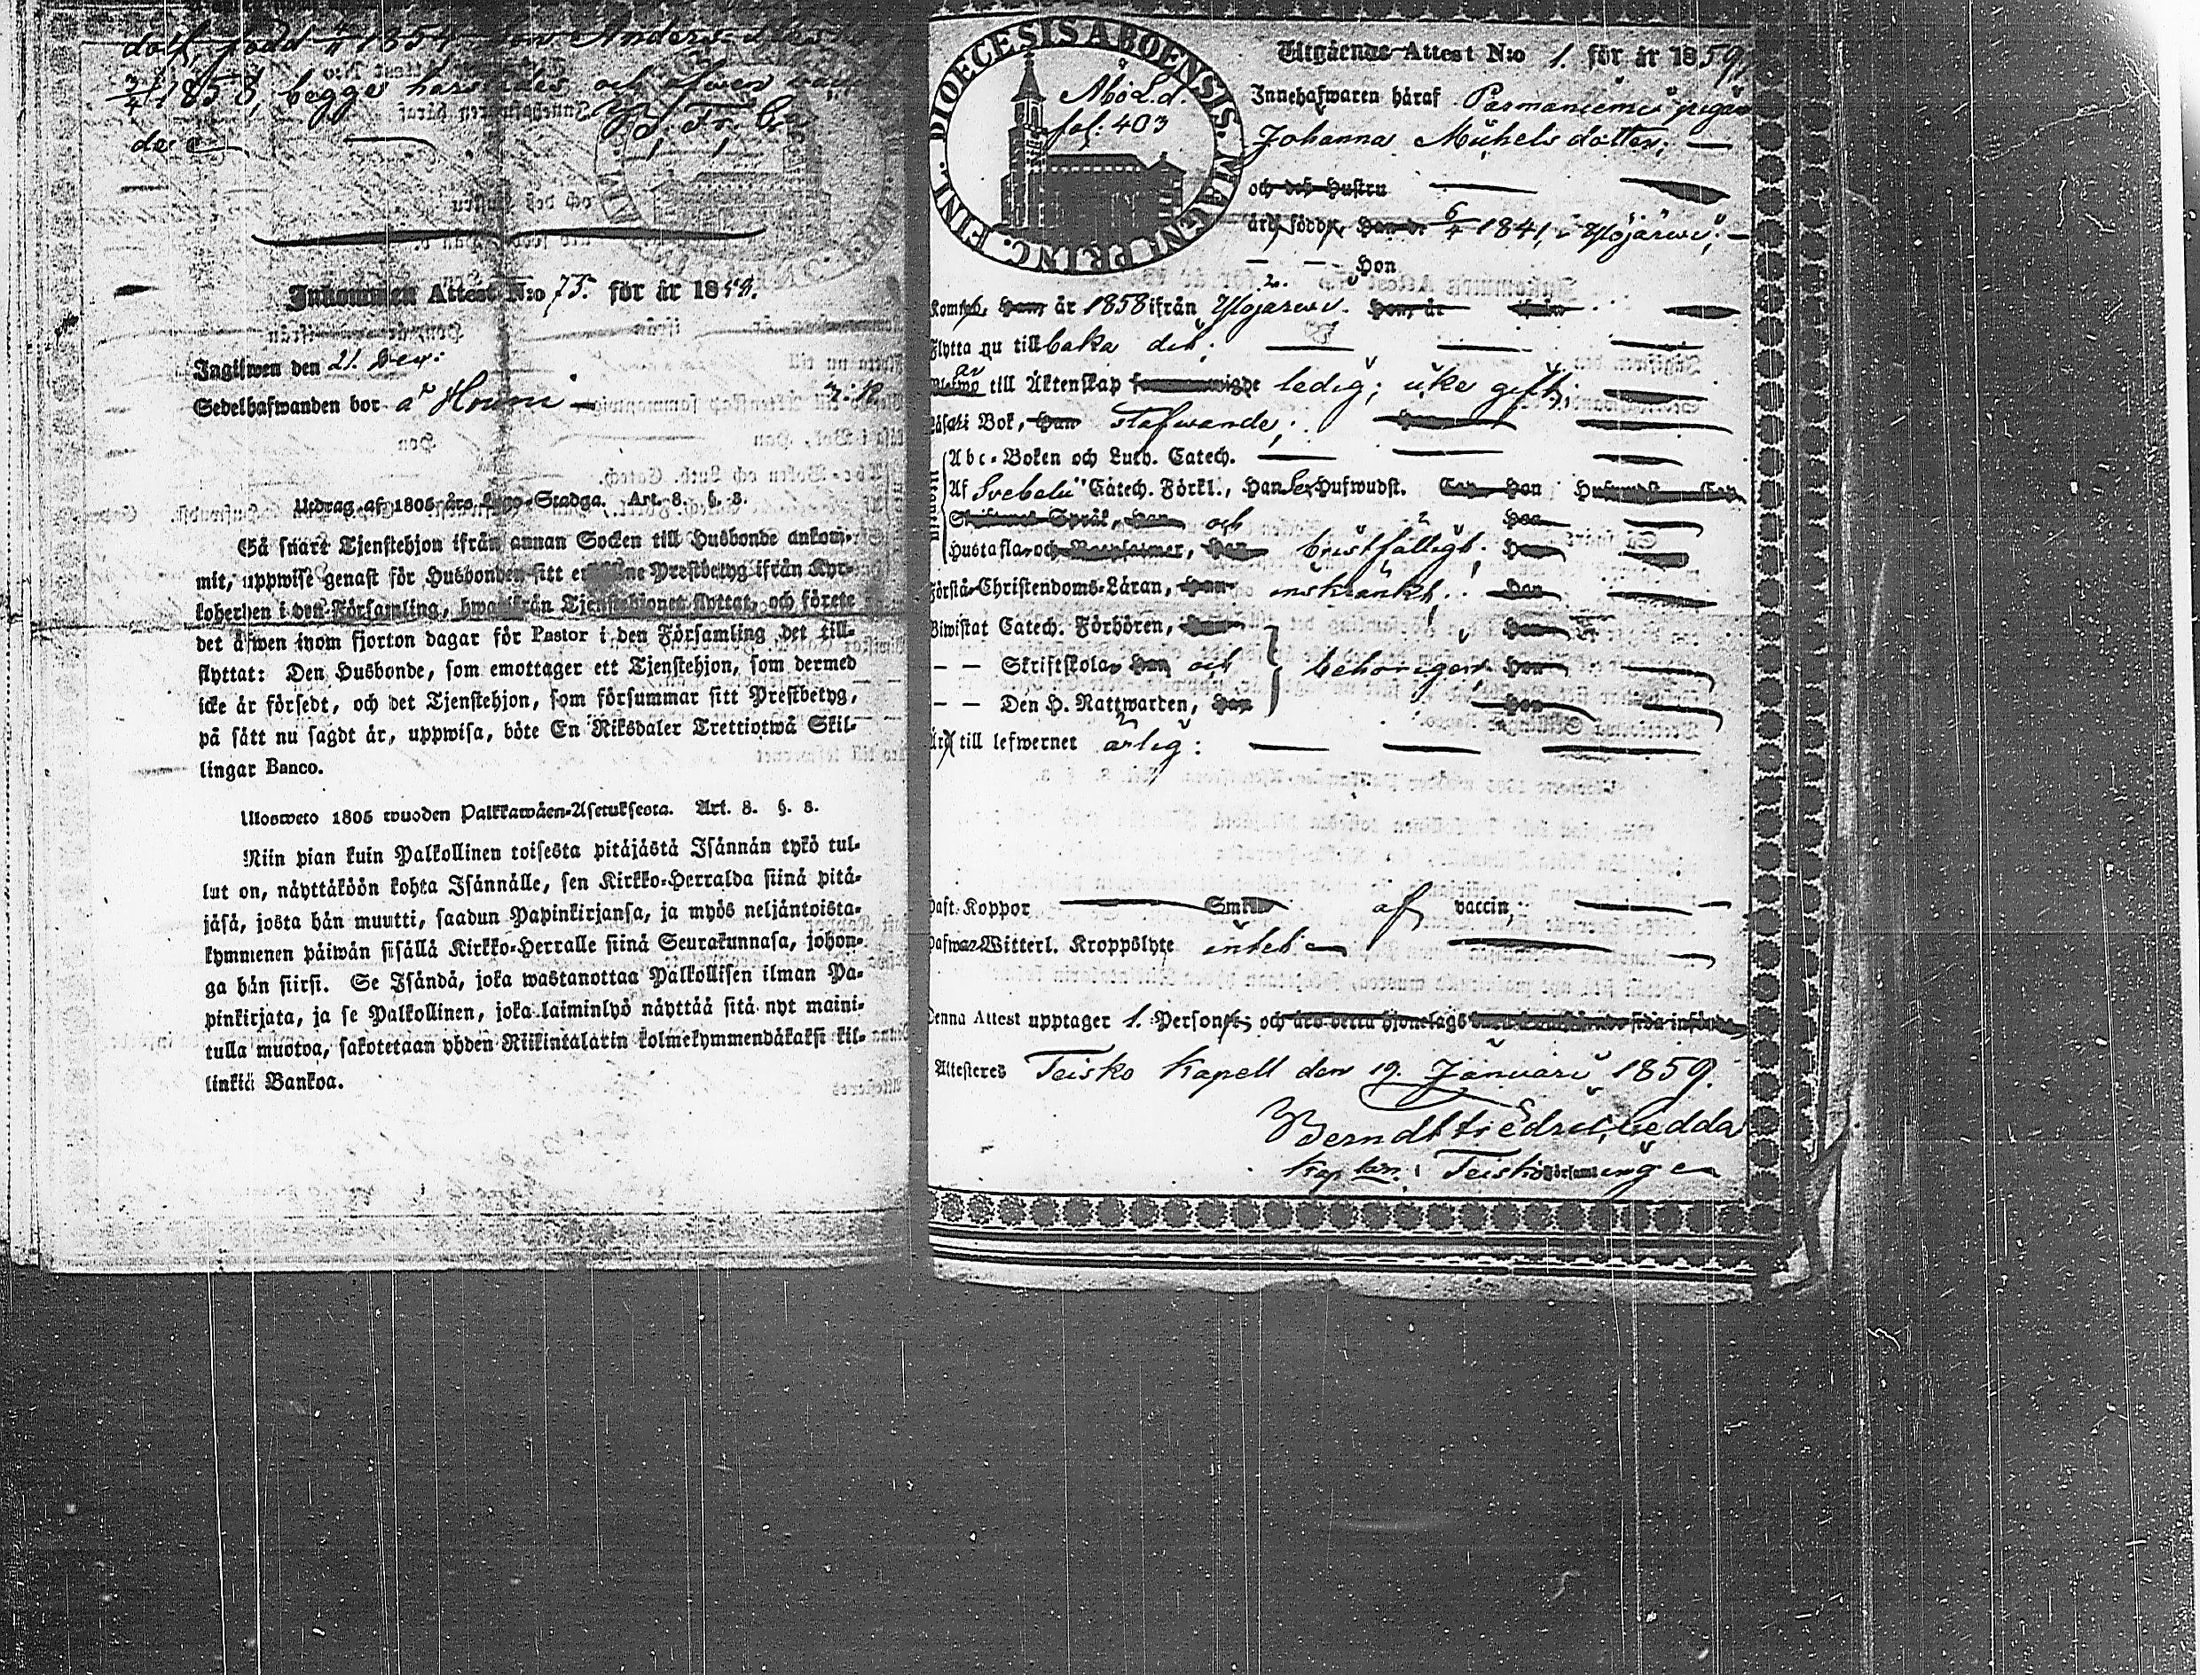 dolf, född 4/11 1854 Anders
3/4 1858, begge härstädes och äfven
de
B. Fr. Ce
Inkommen Attest N:o 75. för år 1858.
Ingifwen den 21. Dec:
Sedelhafwanden bor å Houni
Utdrag af 1805 års Lego-Stadga. Art. 8. §. 8.
Så snart Tjenstehjon ifrån annan Socken till Husbonde ankom-
mit, uppwise genast för Husbonden sitt Prestbetyg ifrån Kyr-
koherden i den Församling, hwarifrån Tjenstehjonet flyttat, och förete
det äfwen inom fjorton dagar för Pastor i den Församling det till-
flyttat: Den Husbonde, som emottager ett Tjenstehjon, som dermed
icke är försedt, och det Tjenstehjon, som försummar sitt Prestbetyg,
på sätt nu sagdt är, uppwisa, böte En Riksdaler Trettiotwå Skil-
lingar Banco.
Ulosweto 1805 wuoden Palkkawäen-Asetuksesta. Art. 8. §. 8.
Niin pian kuin Palkollinen toisesta pitäjästä Isännän tykö tul-
lut on, näyttäköön kohta Isännälle, sen Kirkko-Herralda siinä pitä-
jäsä, josta hän muutti, saadun Papinkirjansa, ja myös neljäntoista-
kymmenen päiwän sisällä Kirkko-Herralle siinä Seurakunnasa, johon-
ga hän siirsi. Se Isändä, joka wastanottaa Palkollisen ilman Pa-
pinkirjata, ja se Palkollinen, joka laiminlyö näyttää sitä nyt maini-
tulla muotoa, sakotetaan yhden Riikintalarin kolmekymmendäkaksi kil-
linkiä Bankoa.
FINL. DIOECESIS ABOENSIS. MAGN. PRINC.
Åbo L.d.
fol: 403
Utgående Attest N:o 1. för år 1859.
Innehafwaren häraf Parmaniemi pigan
Johanna Michelsdotter;
och deß Hustru
äro födde, Han d. 6/4 1841, i Ylöjärwi;
Hon
Komne, Han år 1858 ifrån Ylöjärwi. Hon år ifrån
Flytta nu tillbaka dit;
är till Äktenskap ledig; icke gift;
Läsa i Bok, Han stafwande; Hon
Abc-Boken och Luth. Catech.
Af Svebelii Catech. Förkl., Han Sex Hufwudst. Cap. Hon Hufwudst. Cap.
Skriftenes Språk, Han och Hon
Hustaflan och Botpsalmer, Han bristfälligt; Hon
Förstå Christendoms-Läran, Han inskränkt; Hon
Biwistat Catech. Förhören, Han Hon
— — Skriftskolan, Han och behörigen; Hon
— — Den H. Nattwarden, Han Hon
Äro till lefwernet ärlig:
Haft Koppor Smitt af vaccin,
Hafwa Witterl. Kroppslyte intet
Denna Attest upptager 1. Person, och
Attesteres Teisko Kapell den 19. Januari 1859.
Berndt Fredric Cedda
Kaplan i Teisko Församlingen